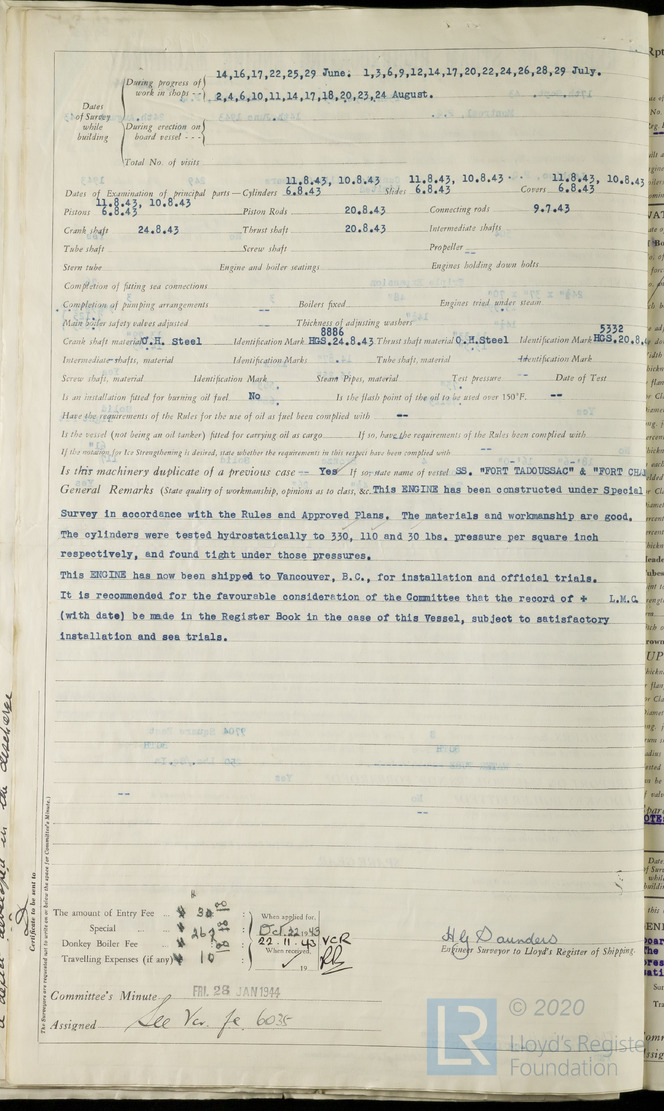 During progress of work in shops - - 14,16,17,22,25,29 June. 1,3,6,9,12,14,17,20,22,24,26,28,29 July.
2,4,6,10,11,14,17,18,20,23,24 August.
Dates of Survey while building
During erection on board vessel - - -
Total No. of visits
Dates of Examination of principal parts—Cylinders 11.8.43, 10.8.43 6.8.43 Slides 11.8.43, 10.8.43 6.8.43 Covers 11.8.43, 10.8.43 6.8.43
Pistons 11.8.43, 10.8.43 6.8.43 Piston Rods 20.8.43 Connecting rods 9.7.43
Crank shaft 24.8.43 Thrust shaft 20.8.43 Intermediate shafts
Tube shaft Screw shaft Propeller --
Stern tube Engine and boiler seatings Engines holding down bolts
Completion of fitting sea connections
Completion of pumping arrangements -- Boilers fixed Engines tried under steam
Main boiler safety valves adjusted Thickness of adjusting washers
Crank shaft material O.H. Steel Identification Mark 8886 HGS.24.8.43 Thrust shaft material O.H.Steel Identification Mark 5332 HGS.20.8.
Intermediate shafts, material Identification Marks Tube shaft, material Identification Mark
Screw shaft, material Identification Mark Steam Pipes, material Test pressure -- Date of Test
Is an installation fitted for burning oil fuel No Is the flash point of the oil to be used over 150°F. --
Have the requirements of the Rules for the use of oil as fuel been complied with --
Is the vessel (not being an oil tanker) fitted for carrying oil as cargo If so, have the requirements of the Rules been complied with
If the notation for Ice Strengthening is desired, state whether the requirements in this respect have been complied with --
Is this machinery duplicate of a previous case -- Yes If so, state name of vessel SS. "FORT TADOUSSAC" & "FORT CHA
General Remarks (State quality of workmanship, opinions as to class, &c. This ENGINE has been constructed under Special
Survey in accordance with the Rules and Approved Plans. The materials and workmanship are good.
The cylinders were tested hydrostatically to 330, 110 and 30 lbs. pressure per square inch
respectively, and found tight under those pressures.
This ENGINE has now been shipped to Vancouver, B.C., for installation and official trials.
It is recommended for the favourable consideration of the Committee that the record of + L.M.C.
(with date) be made in the Register Book in the case of this Vessel, subject to satisfactory
installation and sea trials.
--
--
Certificate to be sent to
(The Surveyors are requested not to write on or below the space for Committee's Minute.)
The amount of Entry Fee ... $ 30 00 : When applied for,
Special ... $ 267 : Oct. 22 1943
Donkey Boiler Fee ... $ : 22.11.43 VCR
Travelling Expenses (if any) $ 10 00 : When received, 19
H G Saunders
Engineer Surveyor to Lloyd's Register of Shipping.
Committee's Minute FRI. 28 JAN 1944
Assigned See Vcr. fe. 6035
LR © 2020
Lloyd's Registe
Foundation